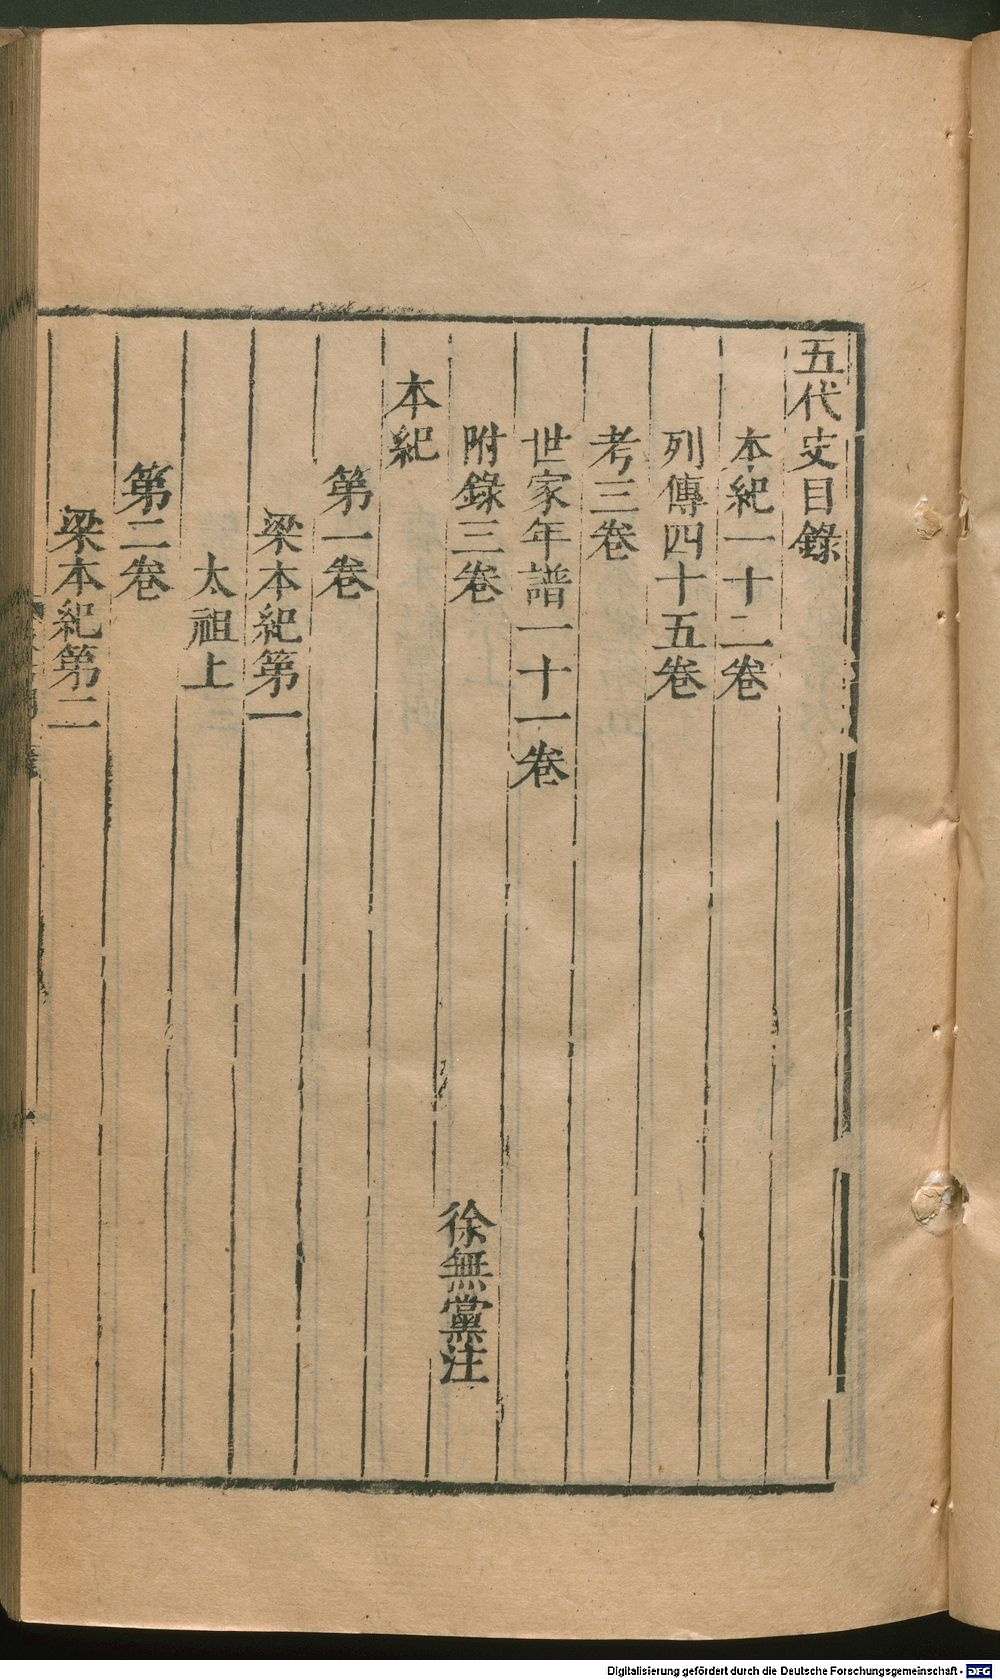 五代史目錄
本紀一十二卷
列傳四十五卷
考三卷
世家年譜一十一卷
附錄三卷 徐無黨注
本紀
第一卷
梁本紀第一
太祖上
第二卷
梁本紀第二
Digitalisierung gefördert durch die Deutsche Forschungsgemeinschaft - DFG